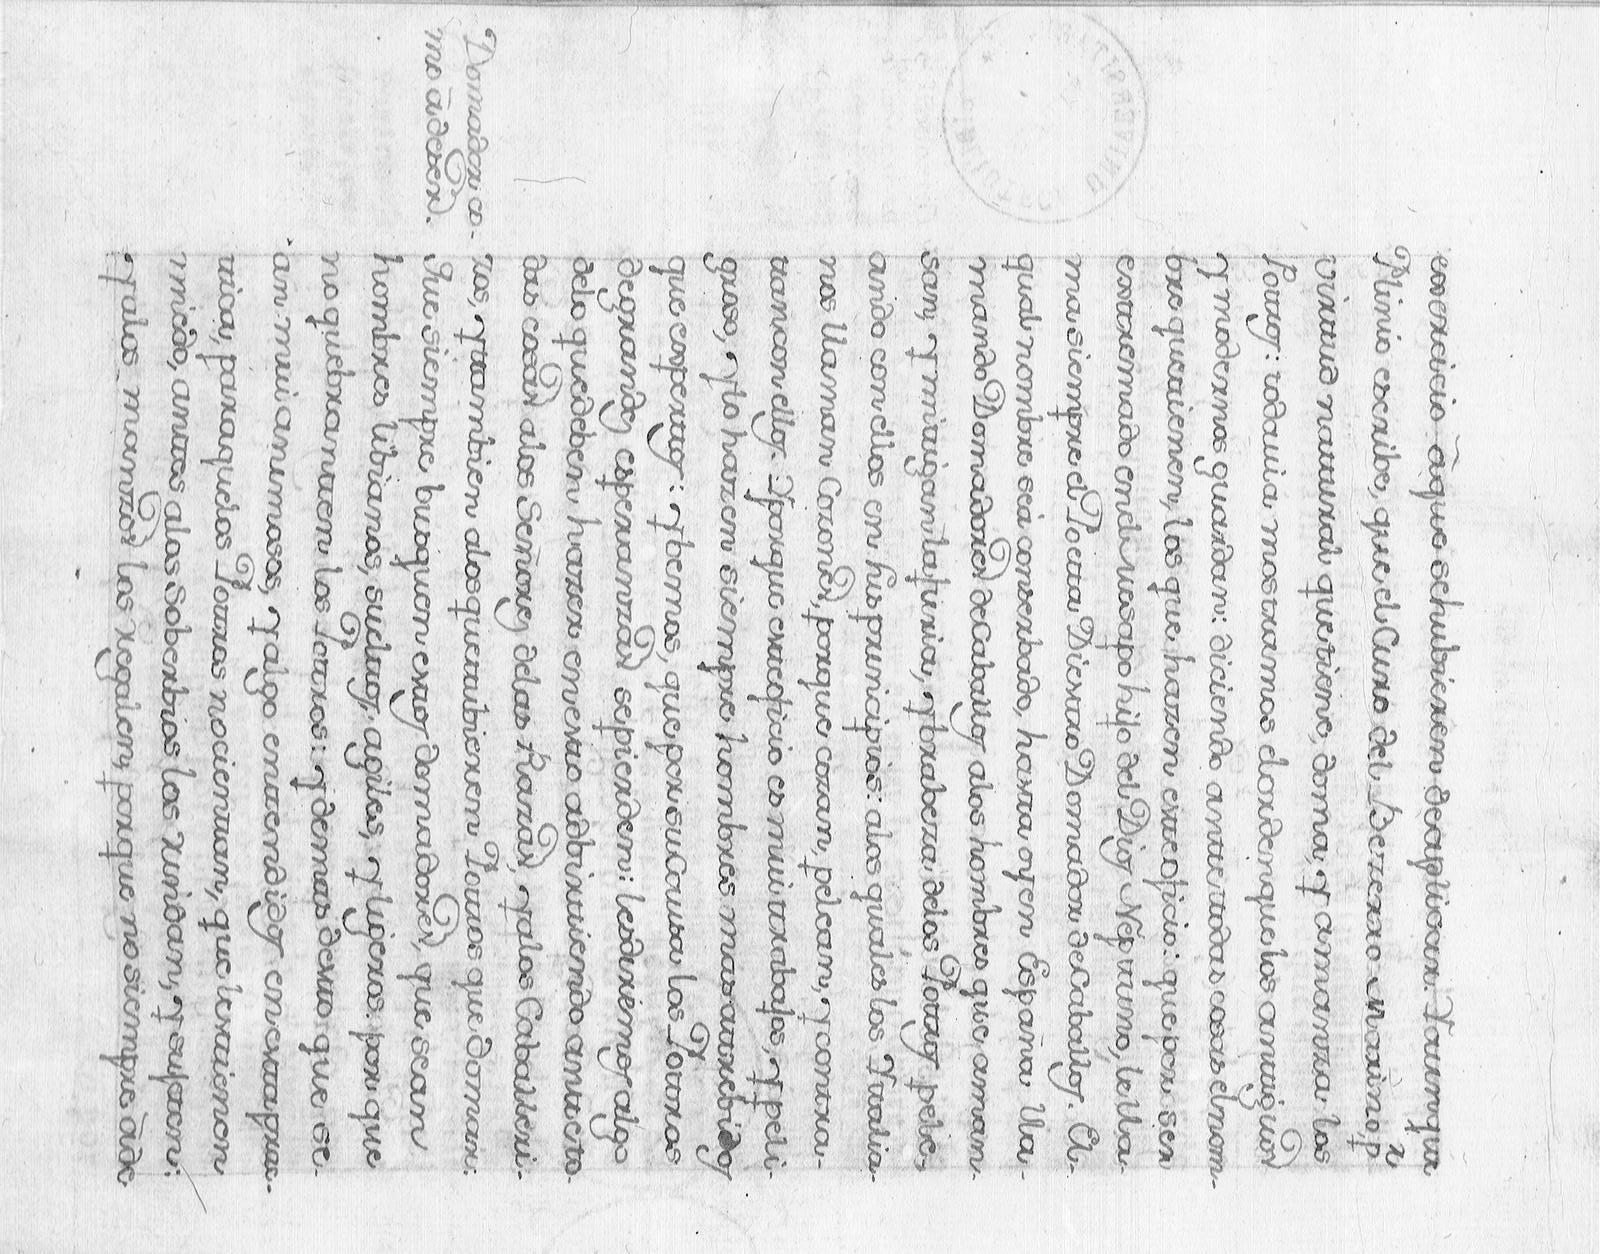 exercicio â que se hubieren de aplicar. Y aunque
Plinio escribe, que el Cuero del Berraco Marino p r
virtud natural que tiene, doma, y amanza los
Potros: todauia mostramos el orden que los antiguos
y modernos guardan: diciendo ante todas cosas el nom-
bre que tienen, los que hazen este oficio: que por ser
extremado en el vn sapo hijo del Dios Neptuno, le lla
ma siempre el Poeta Diestro Domador de Caballos. El
qual nombre se â conserbado, hasta oy en España lla-
mando Domadores de Caballos a los hombres que aman-
san, y mitigan la furia, y brabeza de los Potros pele-
ando con ellos en sus principios: a los quales los Ytalia-
nos llaman Cozones, porque cozan, pelean, y contra-
stan con ellos. Y porque este oficio es mui trabajos, y peli-
groso, y lo hazen siempre hombres mas atrebidos
que expertos: y bemos, que por su Causa los Potros
de grandes esperanzas se pierden: les diremos algo
de lo que deben hazer en esto adbirtiendo ante to-
das cosas a los Señores de las Razas, y a los Caballeri-
zos, y tambien a los que tubieren Potros que doman:
Que siempre busquen estos domadores, que sean
hombres libianos, sueltos, agiles, y ligeros. por que
no quebranten los Potros: y demas desto que se-
an mui animosos, y algo entendidos en esta pra-
tica, para que los Potros no cientan, que les tienen
miedo, antes a los Soberbios los rindan, y sujeten:
y a los manzos los regalen, porque no siempre âde
Domador co-
mo â de ser.